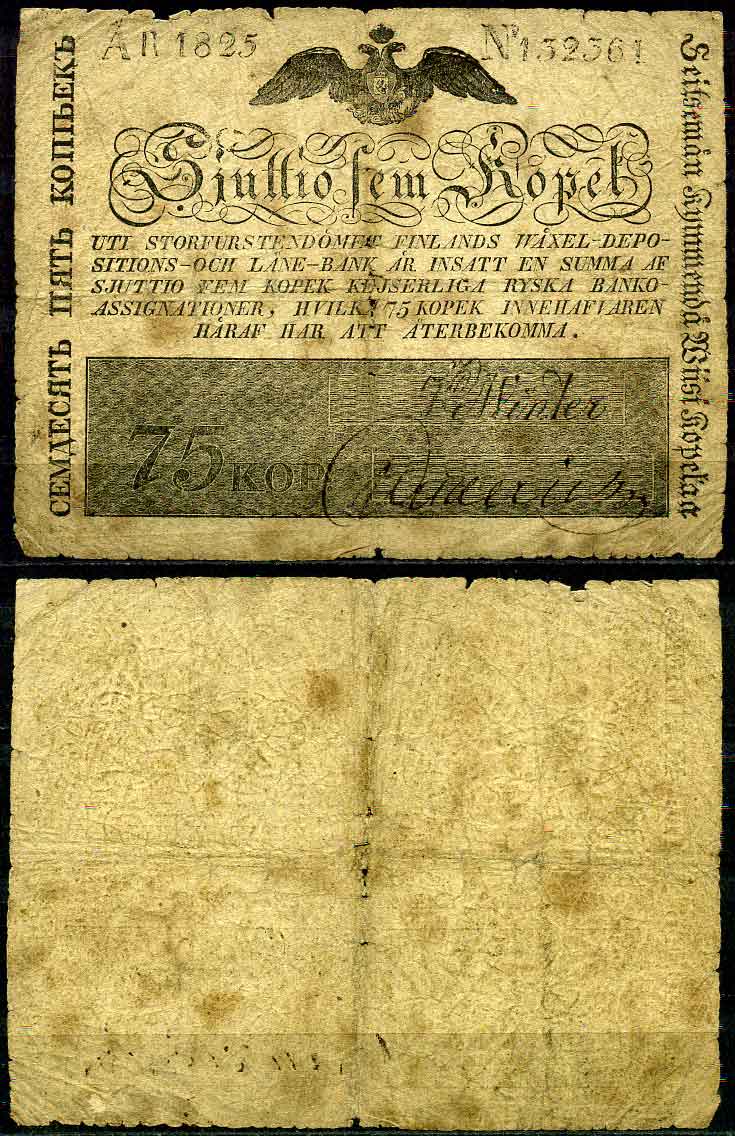 AR 1825
No 132361
Sjuttio fem Kopek
UTI STORFURSTENDÖMET FINLANDS WÄXEL-DEPO-
SITIONS-OCH LÅNE-BANK ÄR INSATT EN SUMMA AF
SJUTTIO FEM KOPEK KEJSERLIGA RYSKA BANKO-
ASSIGNATIONER, HVILKA 75 KOPEK INNEHAFVAREN
HÄRAF HAR ATT ÅTERBEKOMMA.
Winter
75 KOP
СЕМДЕСЯТЬ ПЯТЬ КОПѢЕКЪ
Seitsemän Kymmendä Wiisi Kopekaa